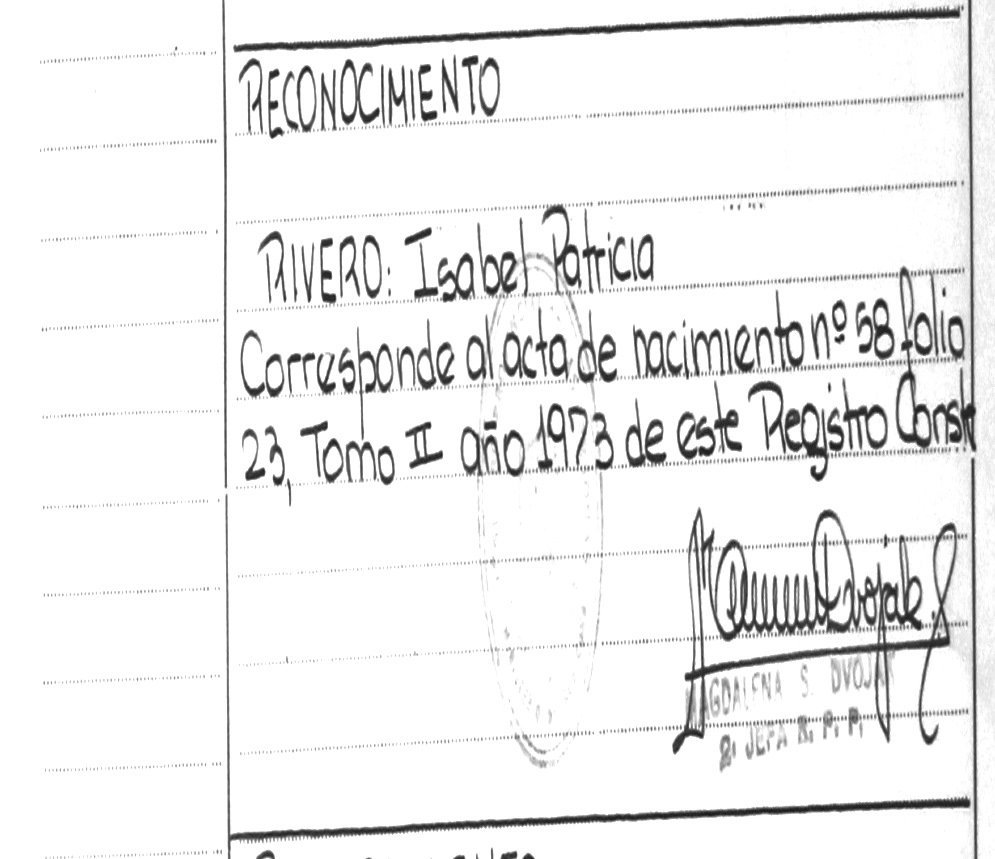 RECONOCIMIENTO
RIVERO: Isabel Patricia
Corresponde al acta de nacimiento nº 58 folio
23, Tomo II año 1973 de este Registro Conste
MAGDALENA S. DVOJAK
2º JEFA R. P. P.